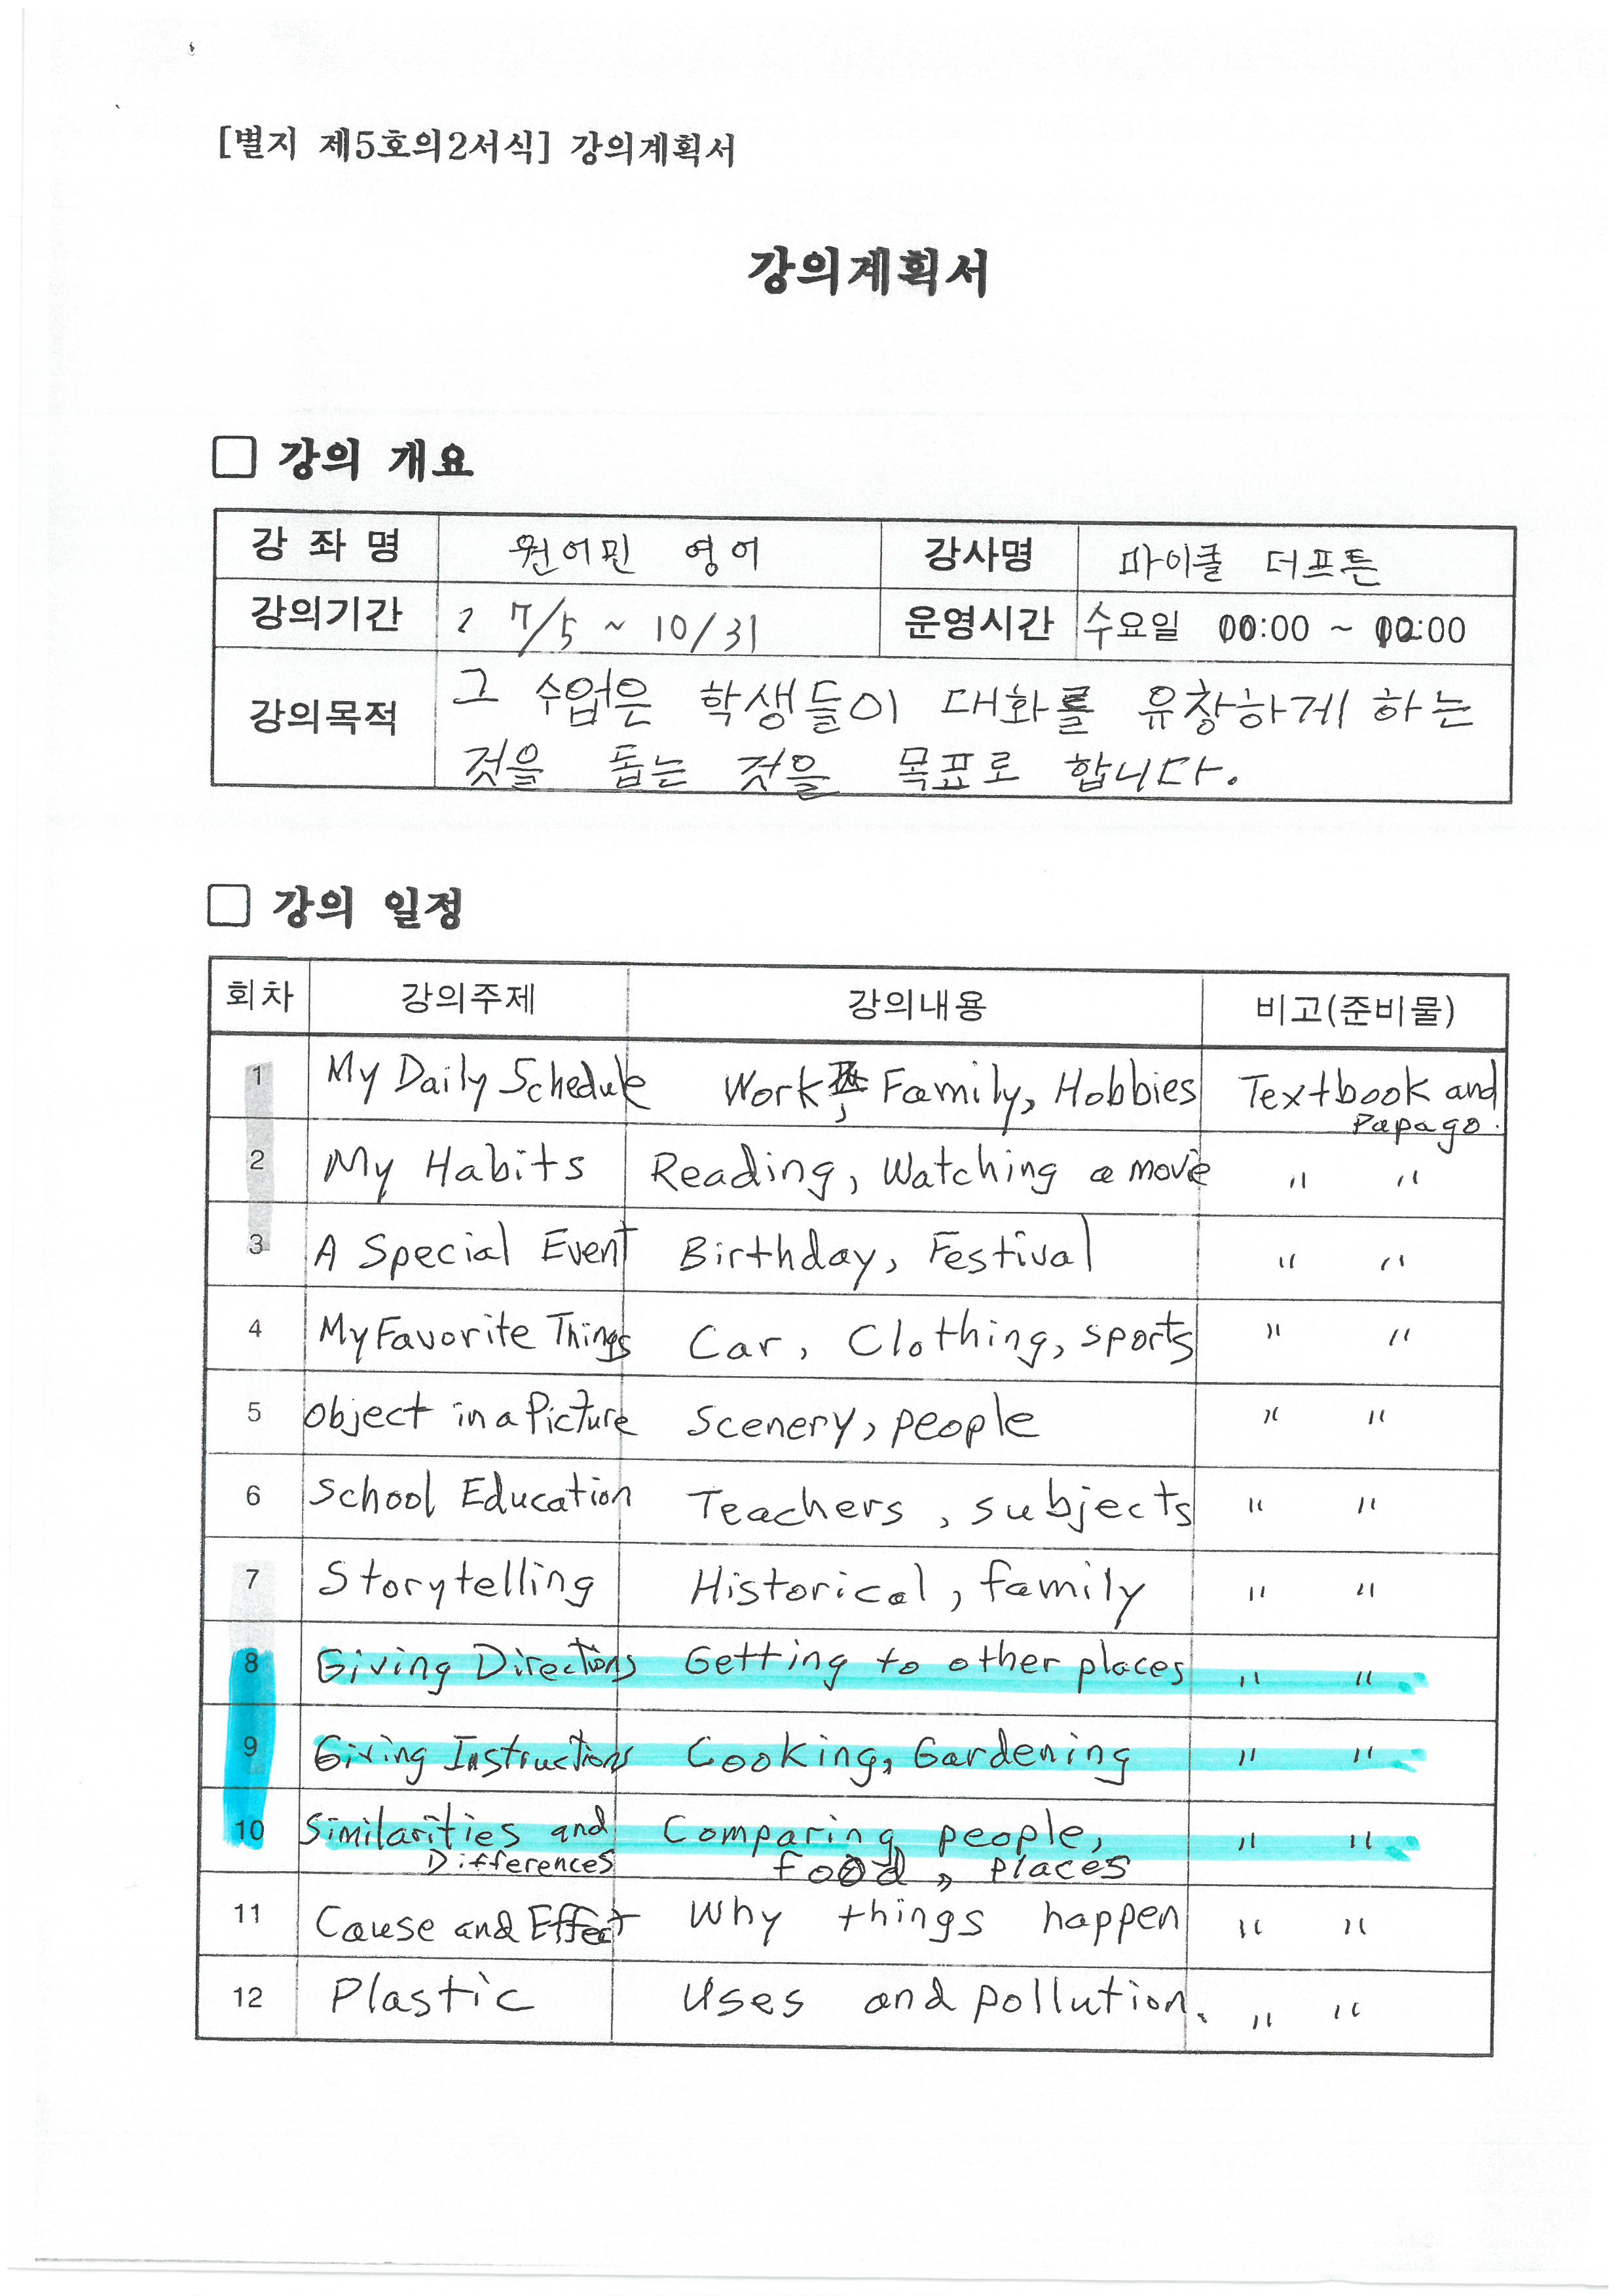 [별지 제5호의2서식] 강의계획서
강의계획서
□ 강의 개요
강 좌 명 원어민 영어 강사명 마이클 더프튼
강의기간 7/5 ~ 10/31 운영시간 수요일 10:00 ~ 12:00
강의목적 그 수업은 학생들이 대화를 유창하게 하는
것을 돕는 것을 목표로 합니다.
□ 강의 일정
회차 강의주제 강의내용 비고(준비물)
1 My Daily Schedule Work, Family, Hobbies Textbook and
Papago.
2 My Habits Reading, Watching a movie " "
3 A Special Event Birthday, Festival " "
4 My Favorite Things Car, Clothing, sports " "
5 Object in a Picture Scenery, people " "
6 School Education Teachers, subjects " "
7 Storytelling Historical, family " "
8 Giving Directions Getting to other places " "
9 Giving Instructions Cooking, Gardening " "
10 Similarities and Comparing people, " "
Differences food, places
11 Cause and Effect Why things happen " "
12 Plastic Uses and pollution. " "